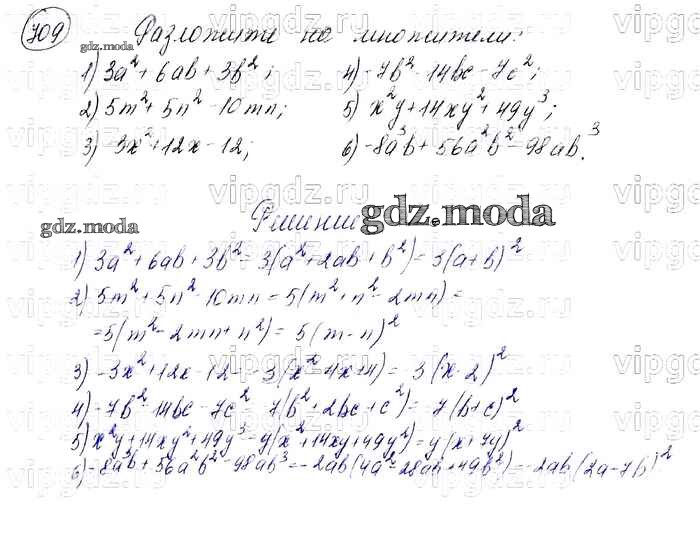 709 Разложите на множители:
1) 3a²+6ab+3b²; 4) -7b²-14bc-7c²;
2) 5m²+5n²-10mn; 5) x²y+14xy²+49y³;
3) -3x²+12x-12; 6) -8a³b+56a²b²-98ab³.
gdz.moda
Решение
gdz.moda
gdz.moda
1) 3a²+6ab+3b²=3(a²+2ab+b²)=3(a+b)²
2) 5m²+5n²-10mn=5(m²+n²-2mn)=
=5(m²-2mn+n²)=5(m-n)²
3) -3x²+12x-12=-3(x²-4x+4)=-3(x-2)²
4) -7b²-14bc-7c²=-7(b²+2bc+c²)=-7(b+c)²
5) x²y+14xy²+49y³=y(x²+14xy+49y²)=y(x+7y)²
6) -8a³b+56a²b²-98ab³=-2ab(4a²-28ab+49b²)=-2ab(2a-7b)²
vipgdz.ru